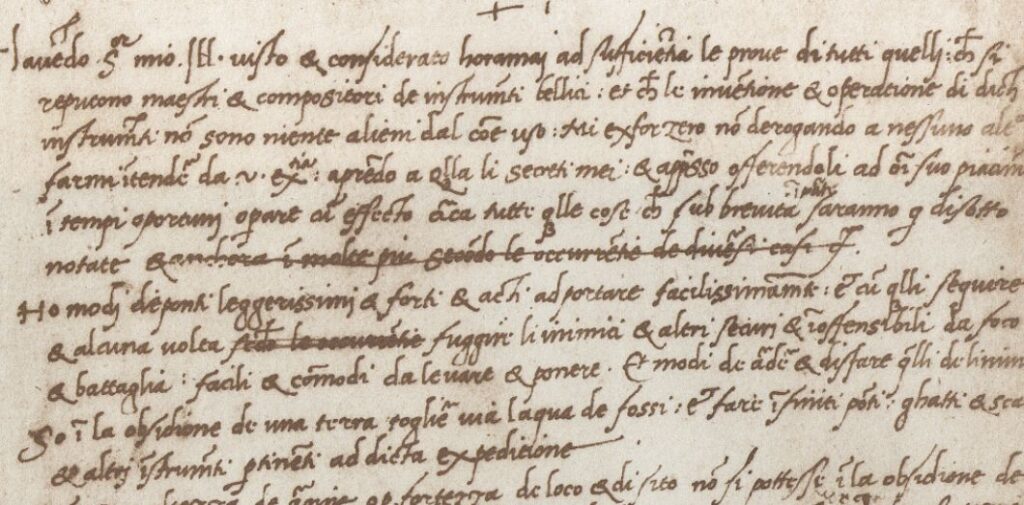 Havẽdo S.or mio Ill. visto & considerato horamai ad sufficiẽtia le prove di tutti quelli: ch̃ si
reputono maestri & compositori de instrumẽti bellici: et ch̃ le invẽtione & operatione di dicti
instrumẽti nõ sono niente alieni dal cõe uso: Mi exforzero nõ derogando a nessuno
farmi ĩtendẽ da v. ex.tia: aprẽdo a q̃lla li secreti mei: & app̃sso offerendoli ad oĩ suo piacim
ĩ tempi oportuni operare cũ effecto circa tutte q̃lle cose ch̃ sub brevita saranno q disotto
notate & anchora ĩ molte piu secõdo le occurrẽtie de diversi casi
Ho modi de ponti leggerissimi & forti & acti ad portare facilissimamẽte: et cũ q̃lli sequire
& alcuna volta le occurrẽtie fuggire li inimici & altri securi & ĩoffensibili da foco
& battaglia: facili & cõmodi da levare & ponere. Et modi de ardẽ & disfare q̃lli de linim
So ĩ la obsidione de una terra togliẽ via laqua de fossi: et fare ĩfiniti põti: ghatti & sca
& altri ĩstrumẽti ptinẽti ad dicta expeditione
de loco & di sito nõ si pottessi ĩ la obsidione de